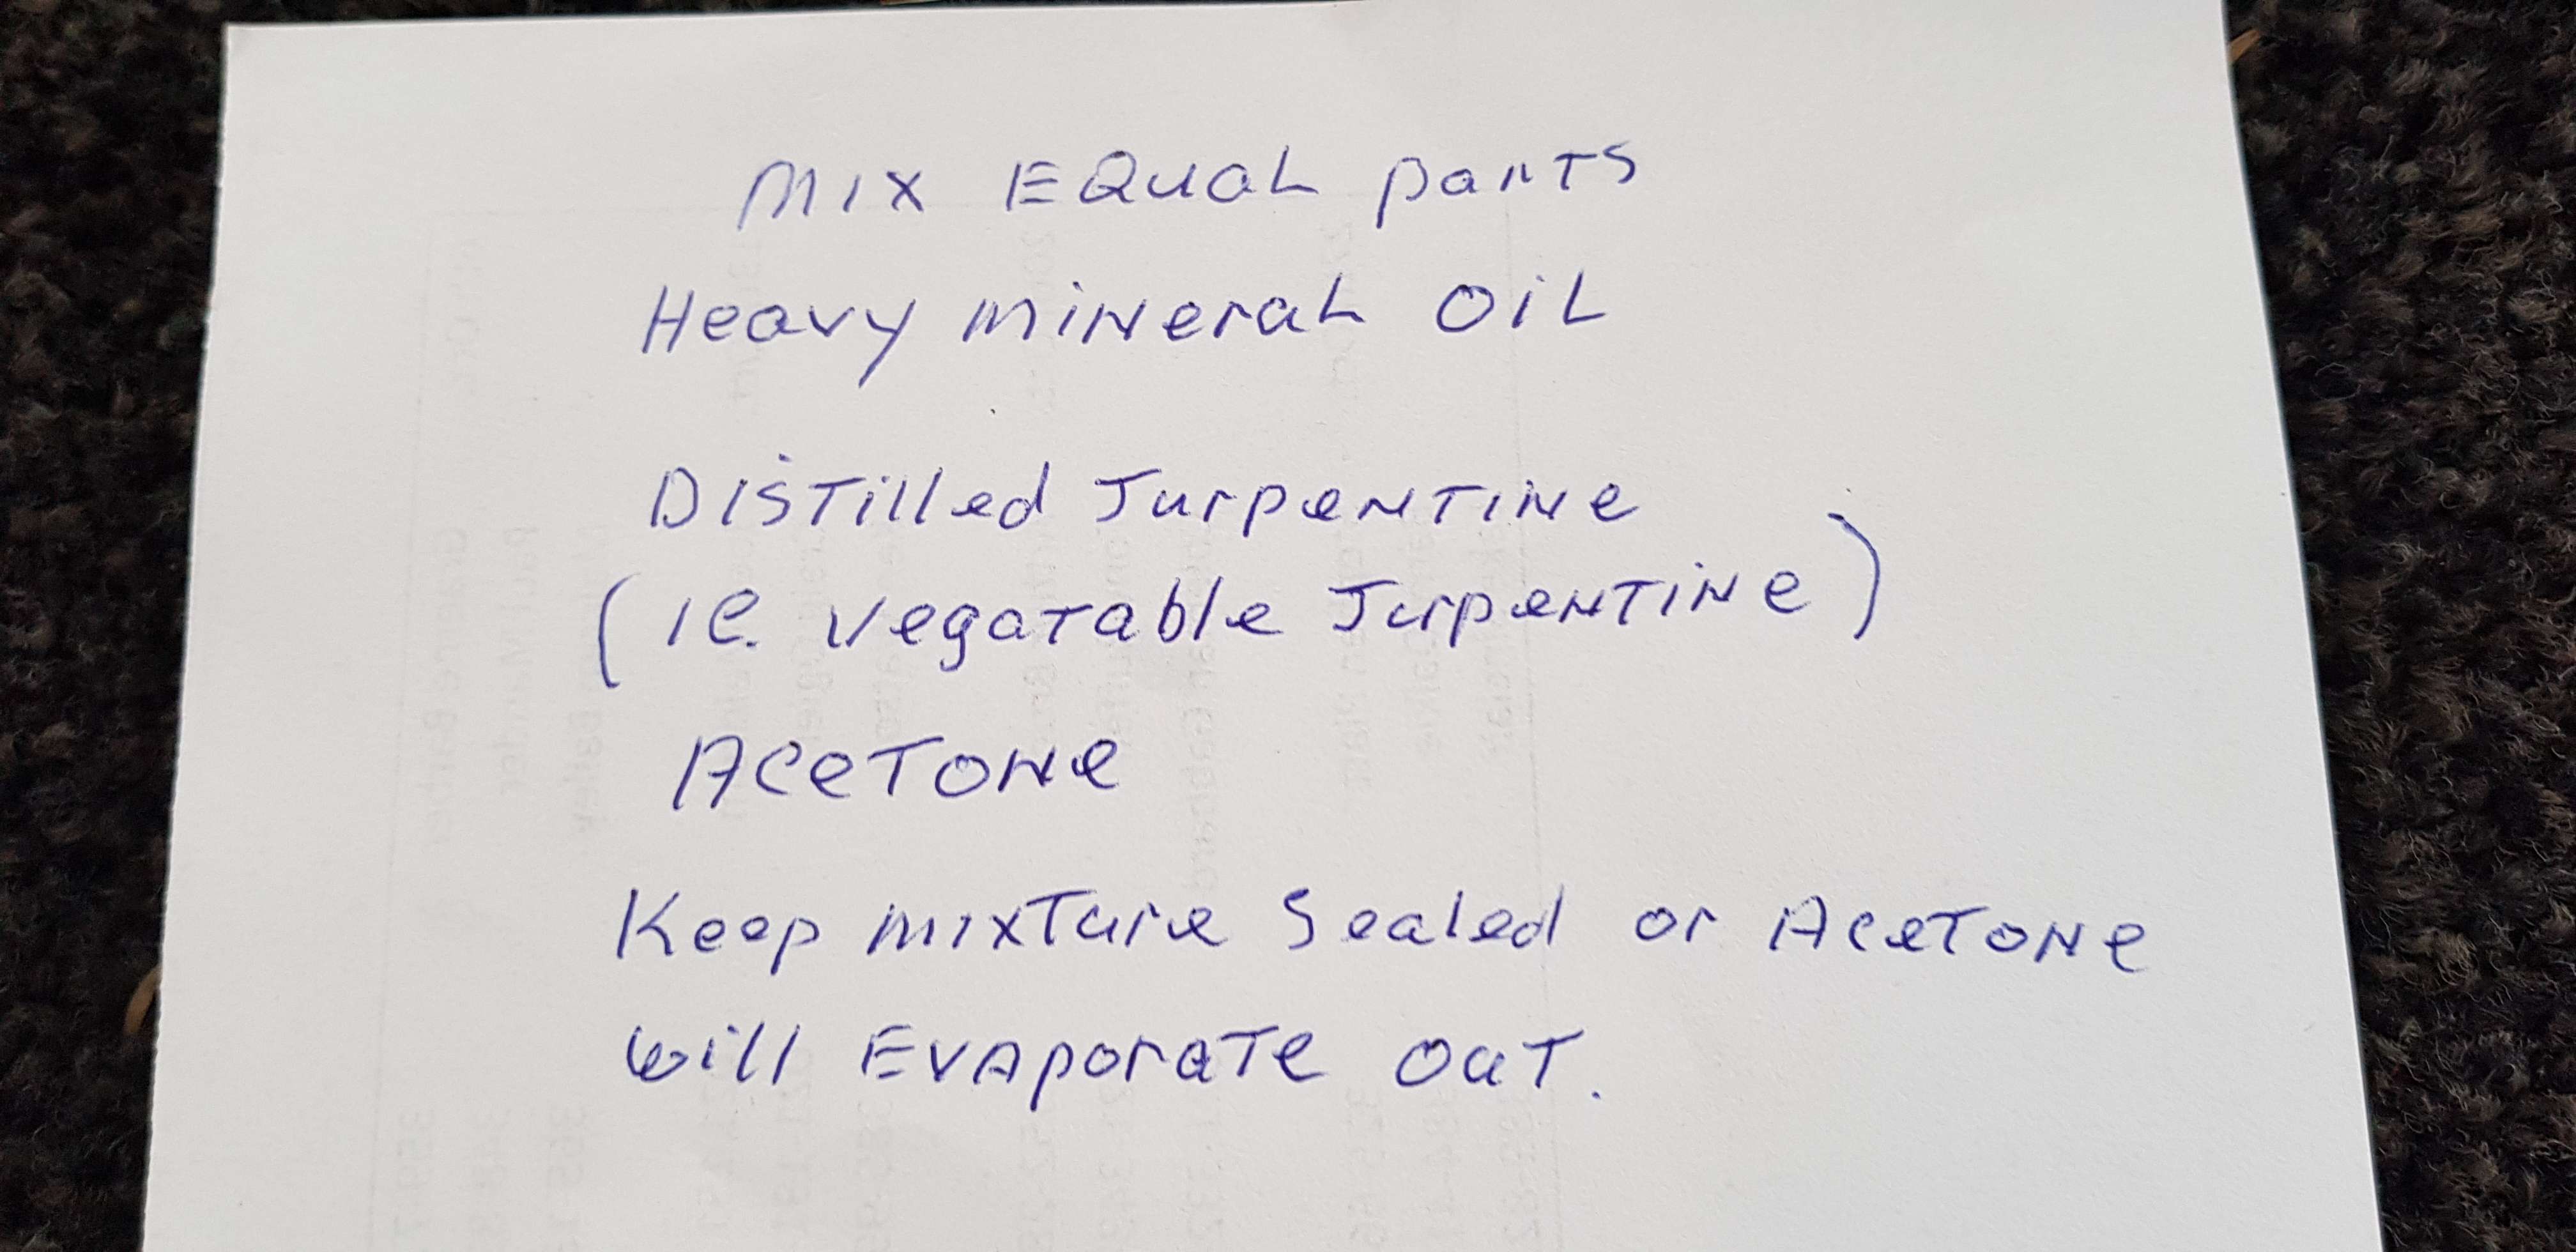 Mix Equal parts
Heavy mineral oil
Distilled Turpentine
(ie. vegatable Turpentine)
Acetone
Keep mixture Sealed or Acetone
will Evaporate out.